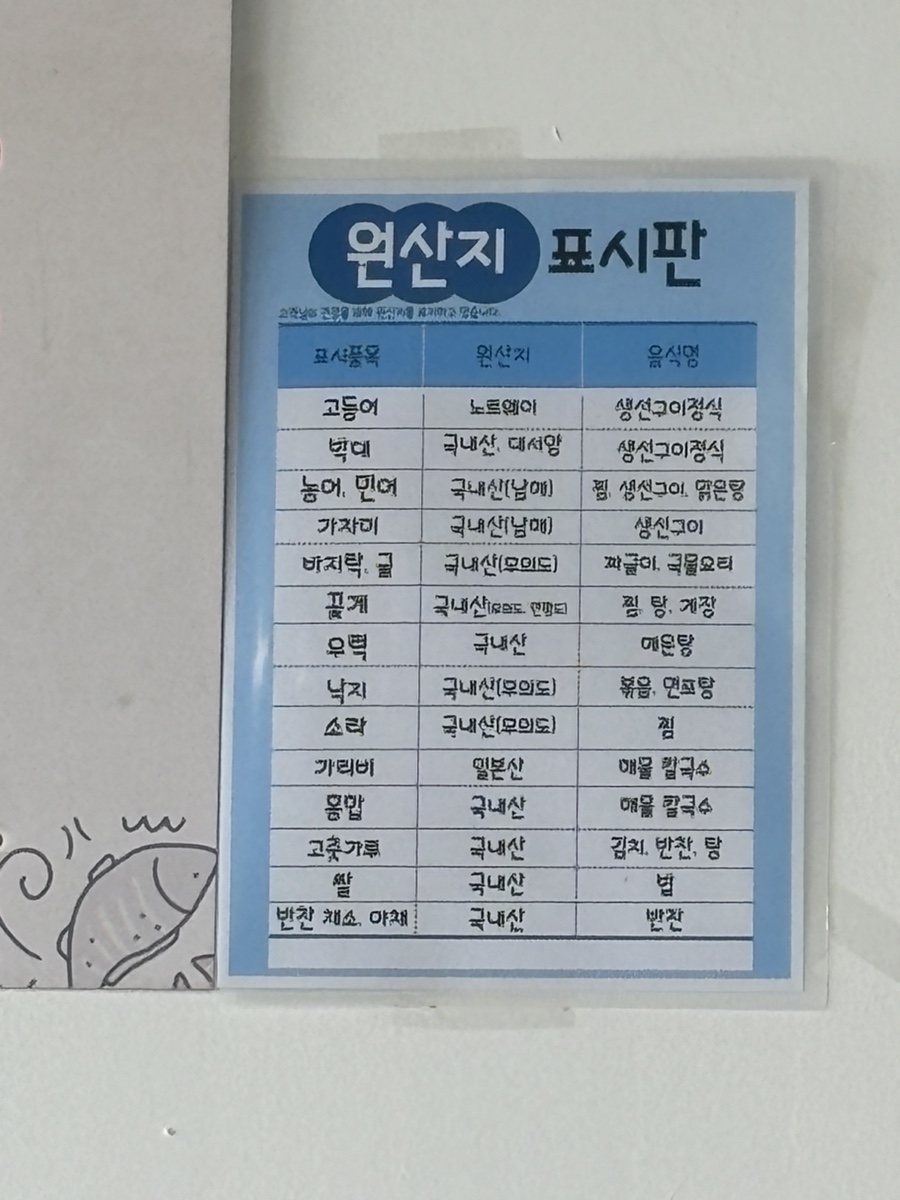 원산지 표시판
표시품목 원산지 음식명
고등어 노르웨이 생선구이정식
박대 국내산, 대서양 생선구이정식
농어, 민어 국내산(남해) 찜, 생선구이, 맑은탕
가자미 국내산(남해) 생선구이
바지락, 굴 국내산(무의도) 짜글이, 국물요리
꽃게 국내산(무의도, 연평도) 찜, 탕, 게장
우럭 국내산 매운탕
낙지 국내산(무의도) 볶음, 연포탕
소라 국내산(무의도) 찜
가리비 일본산 해물 칼국수
홍합 국내산 해물 칼국수
고춧가루 국내산 김치, 반찬, 탕
쌀 국내산 밥
반찬 채소, 야채 국내산 반찬